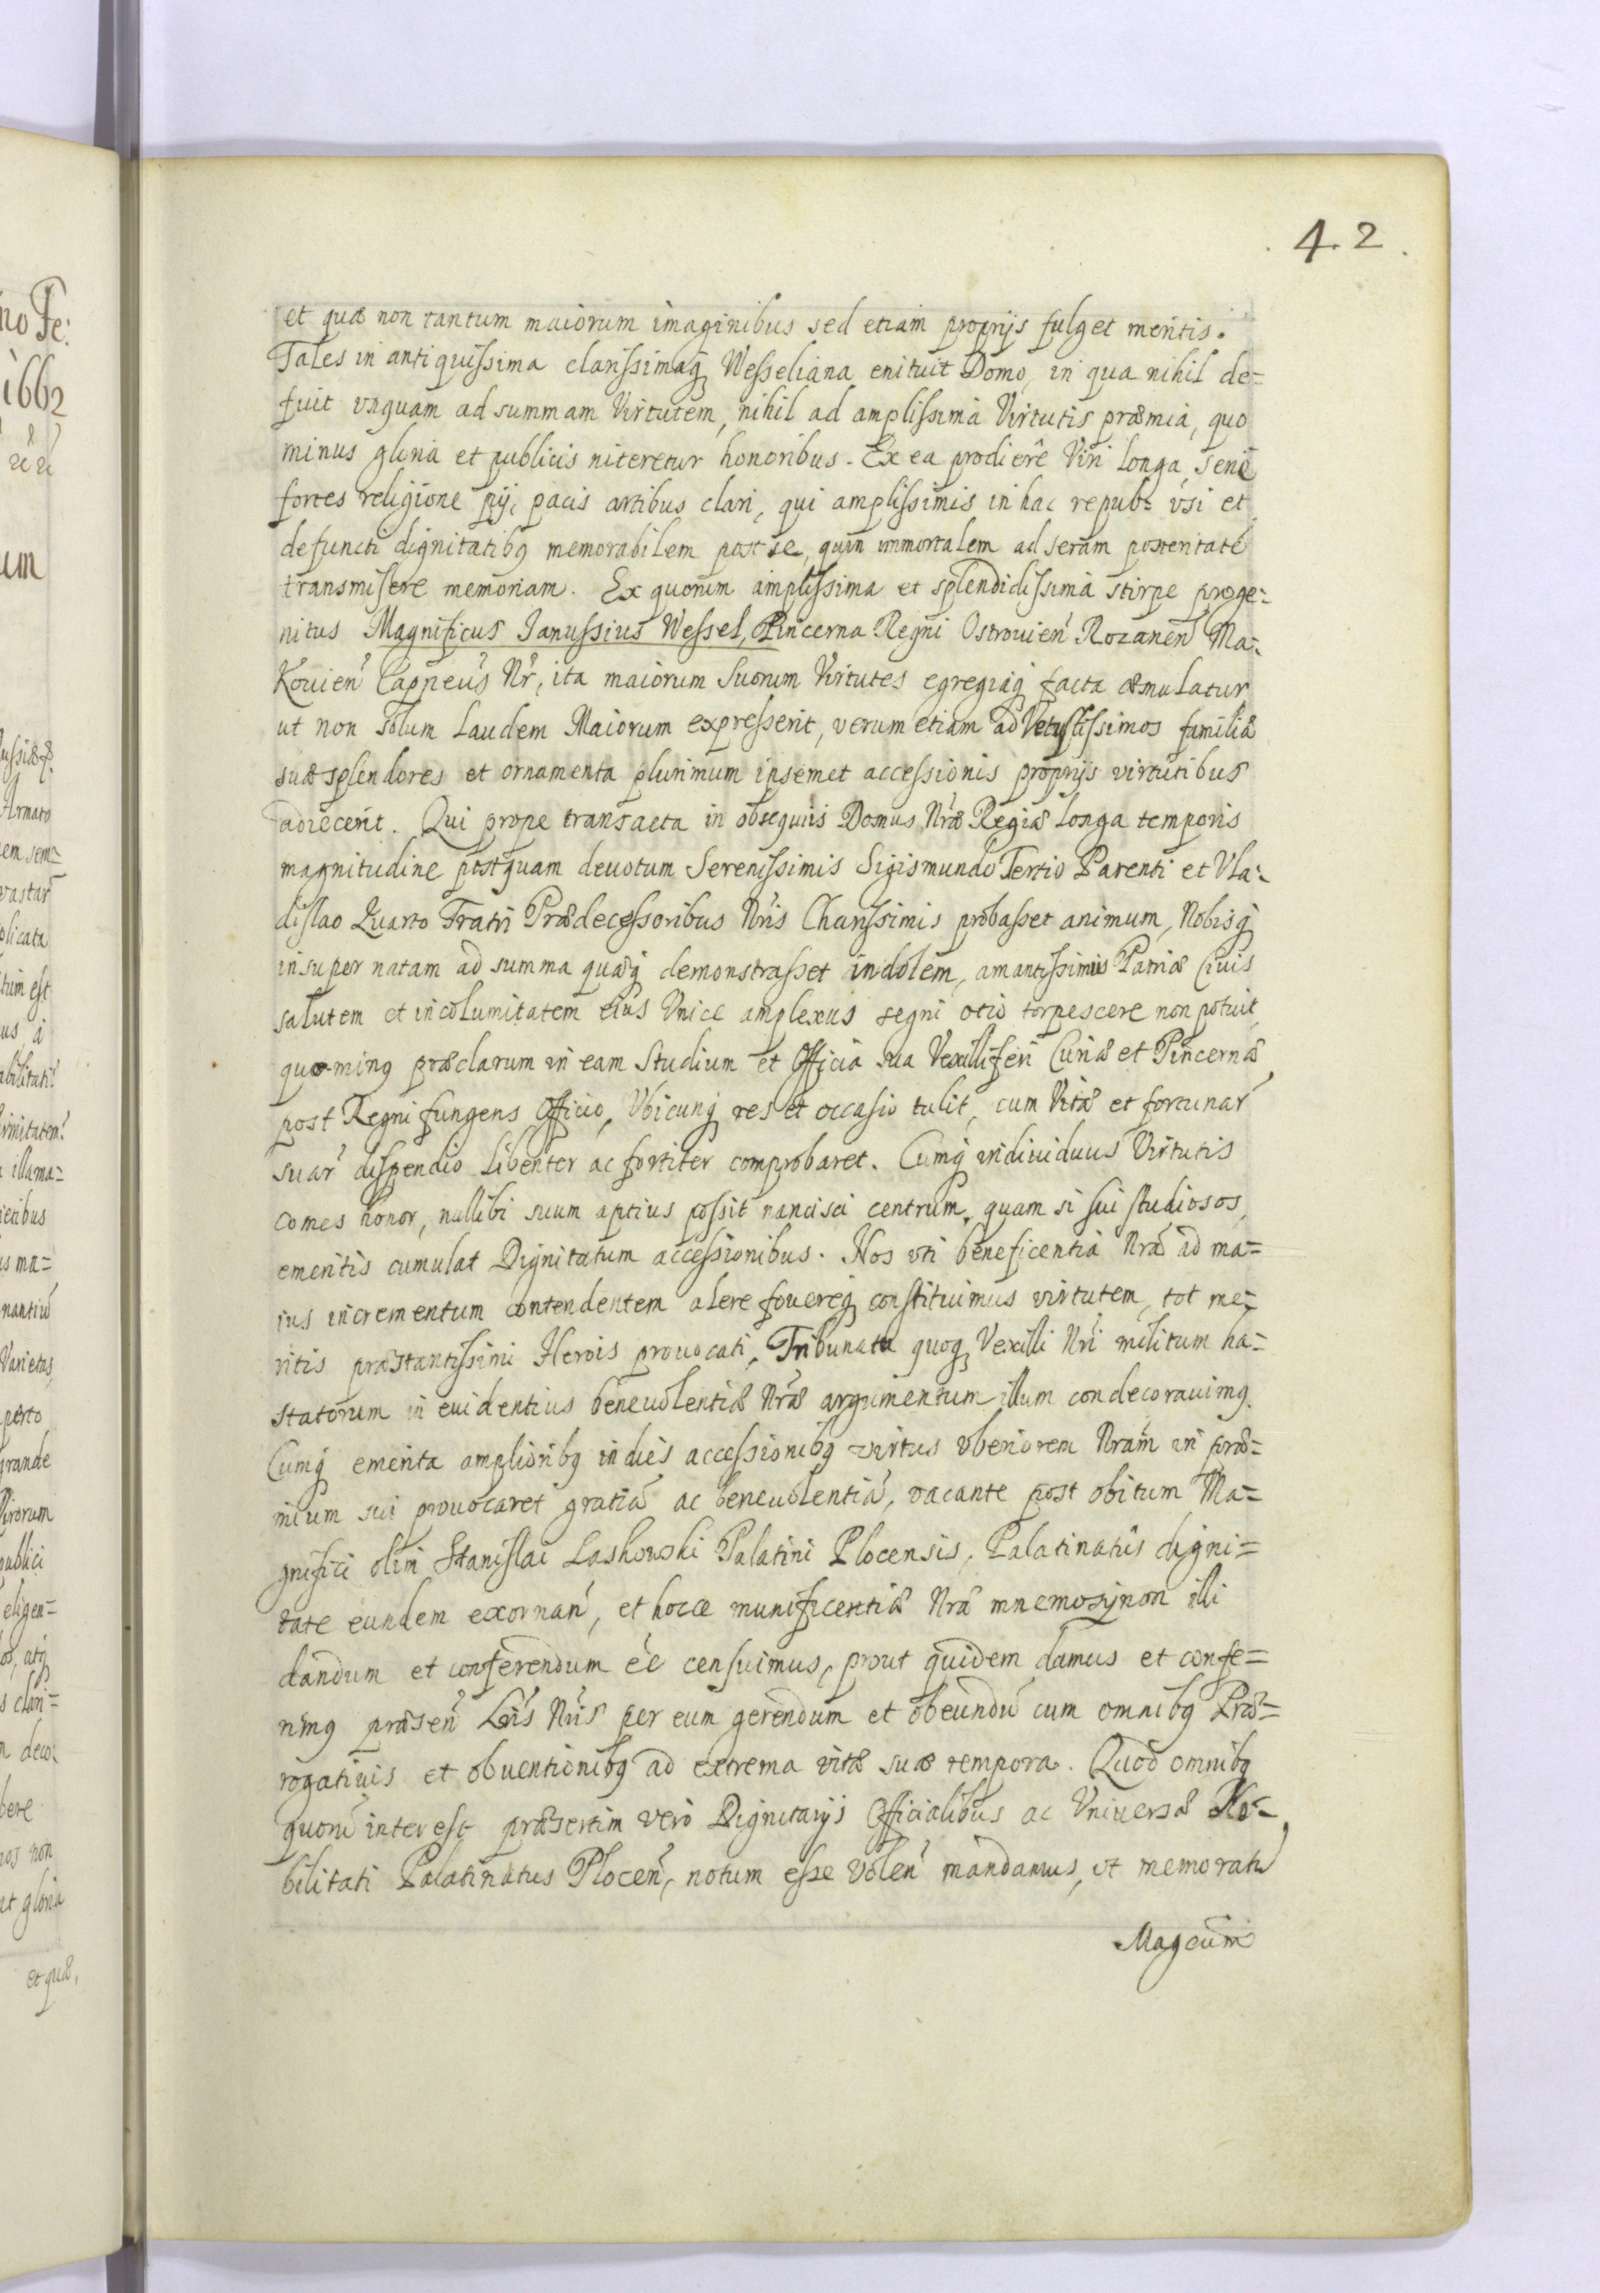 4.2.
et quæ non tantum maiorum imaginibus sed etiam proprijs fulget meritis.
Tales in antiquissima clarissimaq Wesseliana enituit Domo, in qua nihil de=
fuit vnquam ad summam Virtutem, nihil ad amplissima Virtutis præmia, quo
minus gloria et publicis niteretur honoribus. Ex ea prodiere Viri longa serie
fortes religione pij, pacis artibus clari, qui amplissimis in hac repub: vsi et
defuncti dignitatibq memorabilem post se, quin immortalem ad seram posteritatē
transmisere memoriam. Ex quorum amplissima et splendidissima stirpe proge=
nitus Magnificus Janussius Wessel, Pincerna Regni Ostrouień Rozanen Ma=
Kouień Cappeus Nr, ita maiorum Suorum Virtutes egregiaq facta æmulatur
ut non solum Laudem Maiorum expresserit, verum etiam ad Vetustissimos familiæ
suæ splendores et ornamenta plurimum insemet accessionis proprijs virtutibus
adiecerit. Qui prope transacta in obsequiis Domus Nræ Regiæ longa temporis
magnitudine postquam deuotum Serenissimis Sigismundo Tertio Parenti et Vla=
dislao Quarto Fratri Prædecessoribus Nris Charissimis probasset animum, Nobisq
insuper natam ad summa quæq demonstrasset indolem, amantissimus Patriæ Ciuis
salutem et incolumitatem eius Vnice amplexus segni otio torpescere non potuit,
quo-minq præclarum in eam Studium et Officia sua Vexilliferi Curiæ et Pincernæ
post Regni fungens Officio, Vbicunq res et occasio tulit, cum Vitæ et fortunar
suar dispendio libenter ac fortiter comprobaret. Cumq indiuiduus Virtutis
comes honor, nullibi suum aptius possit nancisci centrum, quam si sui studiosos,
emeritis cumulat Dignitatum accessionibus. Nos vti beneficentia Nra ad ma=
ius incrementum contendentem alere fouereq constituimus virtutem, tot me=
ritis præstantissimi Herois prouocati, Tribunatu quoq Vexilli Nri militum ha=
statorum in euidentius beneuolentiæ Nræ argumentum illum condecorauimq.
Cumq emerita amplioribq indies accessionibq virtus vberiorem Nram in præ=
mium sui prouocaret gratiā ac beneuolentiā, vacante post obitum Ma=
gnifici olim Stanislai Laskowski Palatini Plocensis, Palatinatus digni=
tate eundem exornań, et hocce munificentiæ Nræ mnemosynon illi
dandum et conferendum eē censuimus, prout quidem damus et confe=
rimq præsen Lris Nris per eum gerendum et obeundū cum omnibq Præ=
rogatiuis et obuentionibq ad extrema vitæ suæ tempora. Quod omnibq
quorū interest præsertim vero Dignitarijs Officialibus ac Vniuersæ No=
bilitati Palatinatus Plocen, notum esse volen mandamus, vt memoratū
Magcum